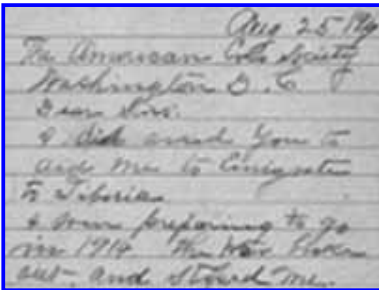 Aug 25 19
The American Colo Society
Washington D. C
Dear Sirs.
I did you to
aid me to Emigrate
to Liberia
I was preparing to go
in 1914 The War
out, and stoped me.